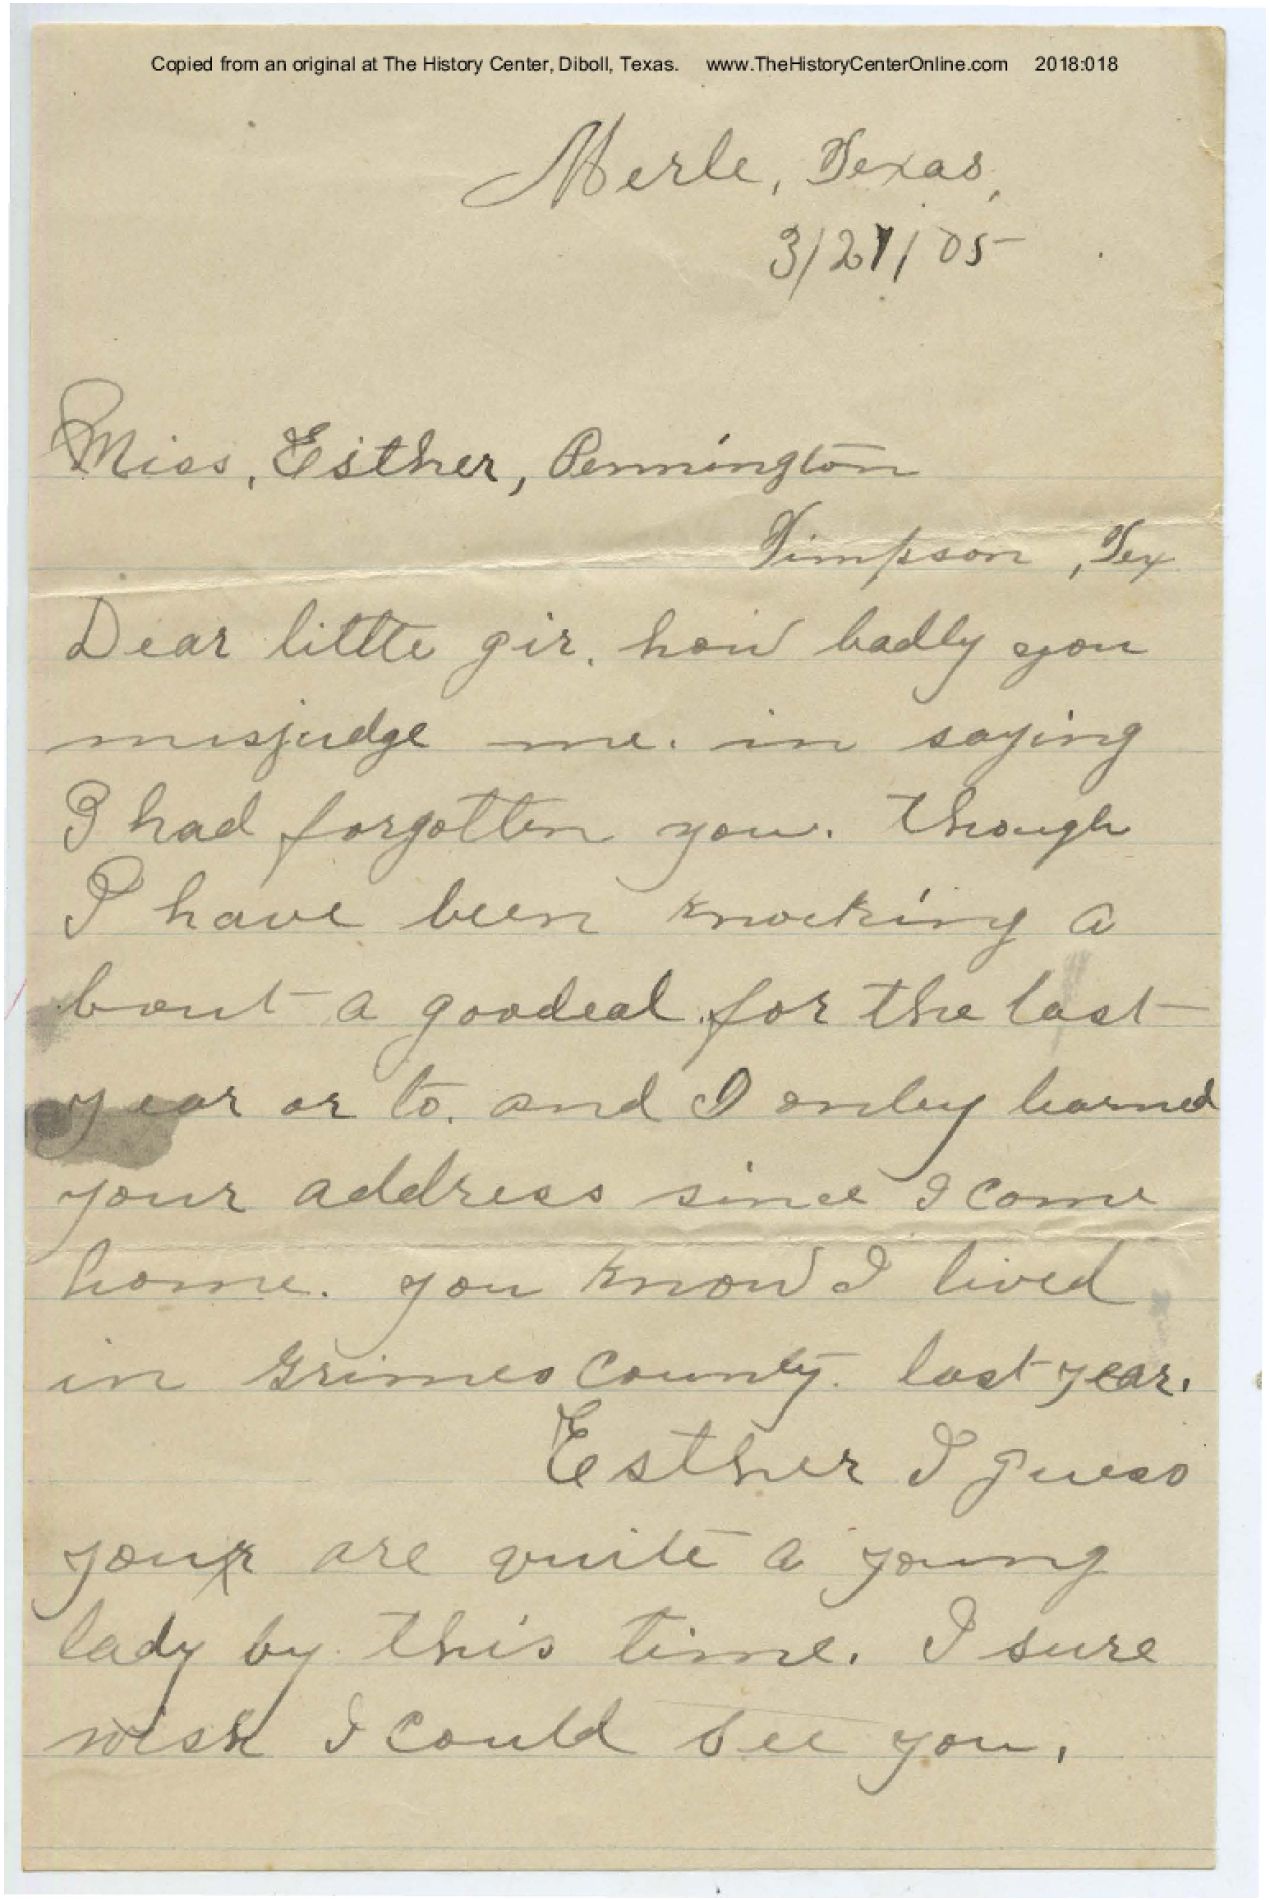 Copied from an original at The History Center, Diboll, Texas. www.TheHistoryCenterOnline.com 2018:018
Merle, Texas,
3/27/05
Miss, Esther, Pennington
Timpson, Tex
Dear little gir. how badly you
misjudge me. in saying
I had forgotten you. though
I have been knocking a
bout a goodeal for the last
year or to. and I onley learned
your address since I come
home. you know I lived
in Grimes County. last year.
Esther I guess
your are quite a young
lady by this time. I sure
wish I could see you.